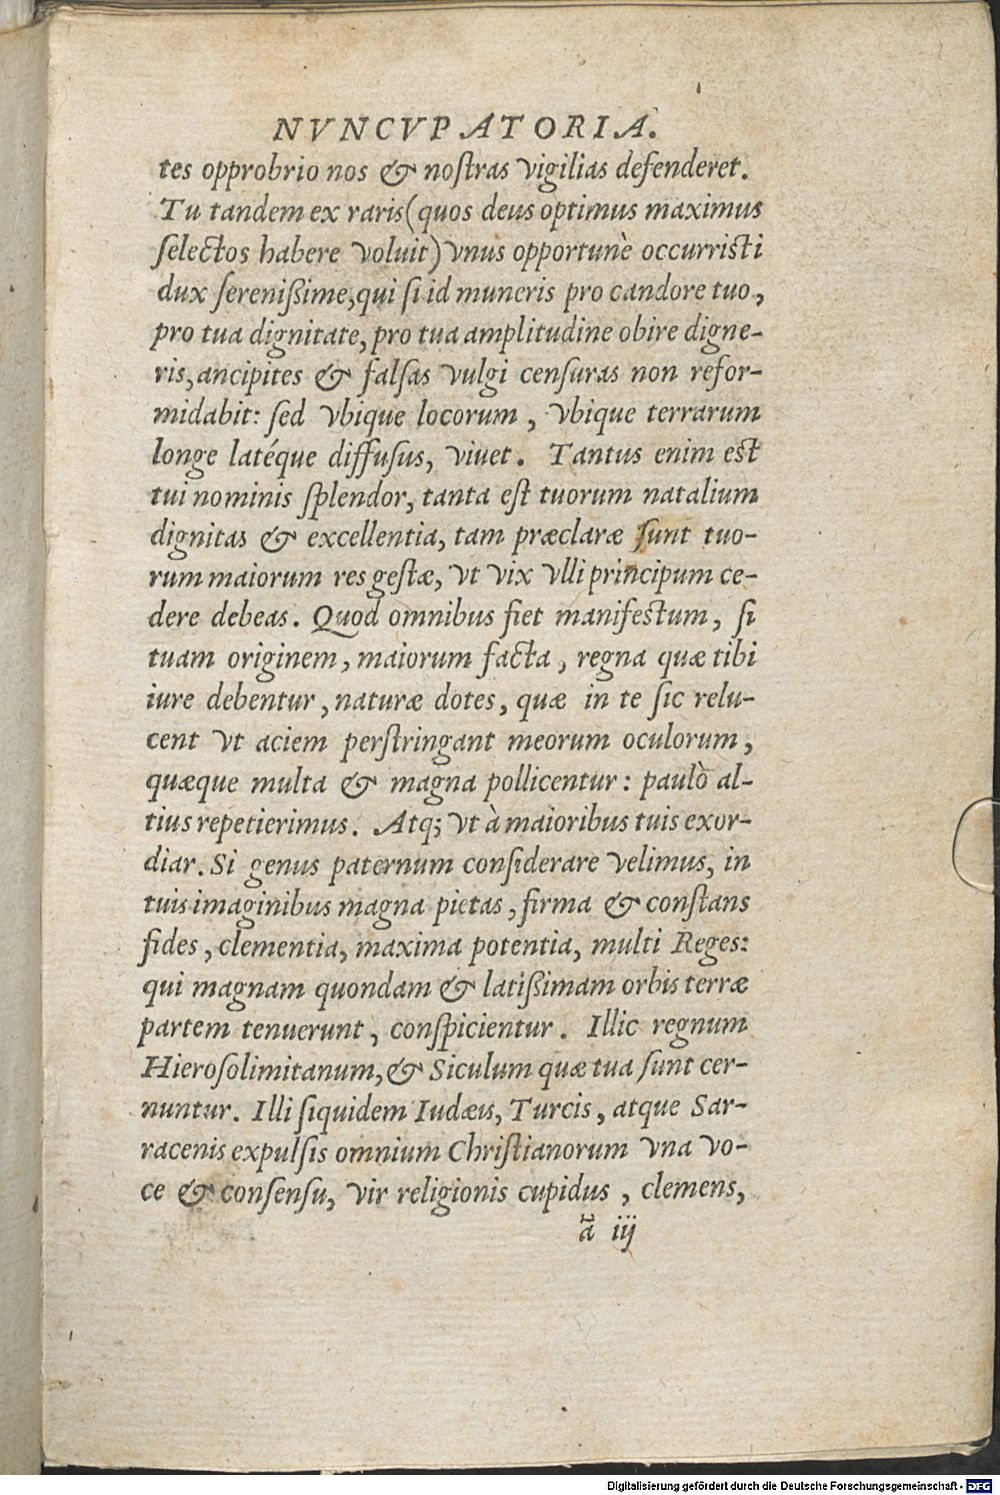 NVNCVPATORIA.
tes opprobrio nos & noſtras vigilias defenderet.
Tu tandem ex raris (quos deus optimus maximus
ſelectos habere voluit) vnus opportunè occurriſti
dux ſereniſſime, qui ſi id muneris pro candore tuo,
pro tua dignitate, pro tua amplitudine obire digne-
ris, ancipites & falſas vulgi cenſuras non refor-
midabit: ſed vbique locorum, vbique terrarum
longe latéque diffuſus, viuet. Tantus enim eſt
tui nominis ſplendor, tanta eſt tuorum natalium
dignitas & excellentia, tam præclaræ ſunt tuo-
rum maiorum res geſtæ, vt vix vlli principum ce-
dere debeas. Quod omnibus fiet manifeſtum, ſi
tuam originem, maiorum facta, regna quæ tibi
iure debentur, naturæ dotes, quæ in te ſic relu-
cent vt aciem perſtringant meorum oculorum,
quæque multa & magna pollicentur: paulò al-
tius repetierimus. Atq; vt à maioribus tuis exor-
diar. Si genus paternum conſiderare velimus, in
tuis imaginibus magna pietas, firma & conſtans
fides, clementia, maxima potentia, multi Reges:
qui magnam quondam & latiſſimam orbis terræ
partem tenuerunt, conſpicientur. Illic regnum
Hieroſolimitanum, & Siculum quæ tua ſunt cer-
nuntur. Illi ſiquidem Iudæis, Turcis, atque Sar-
racenis expulſis omnium Chriſtianorum vna vo-
ce & conſenſu, vir religionis cupidus, clemens,
ã iij
Digitalisierung gefördert durch die Deutsche Forschungsgemeinschaft - DFG